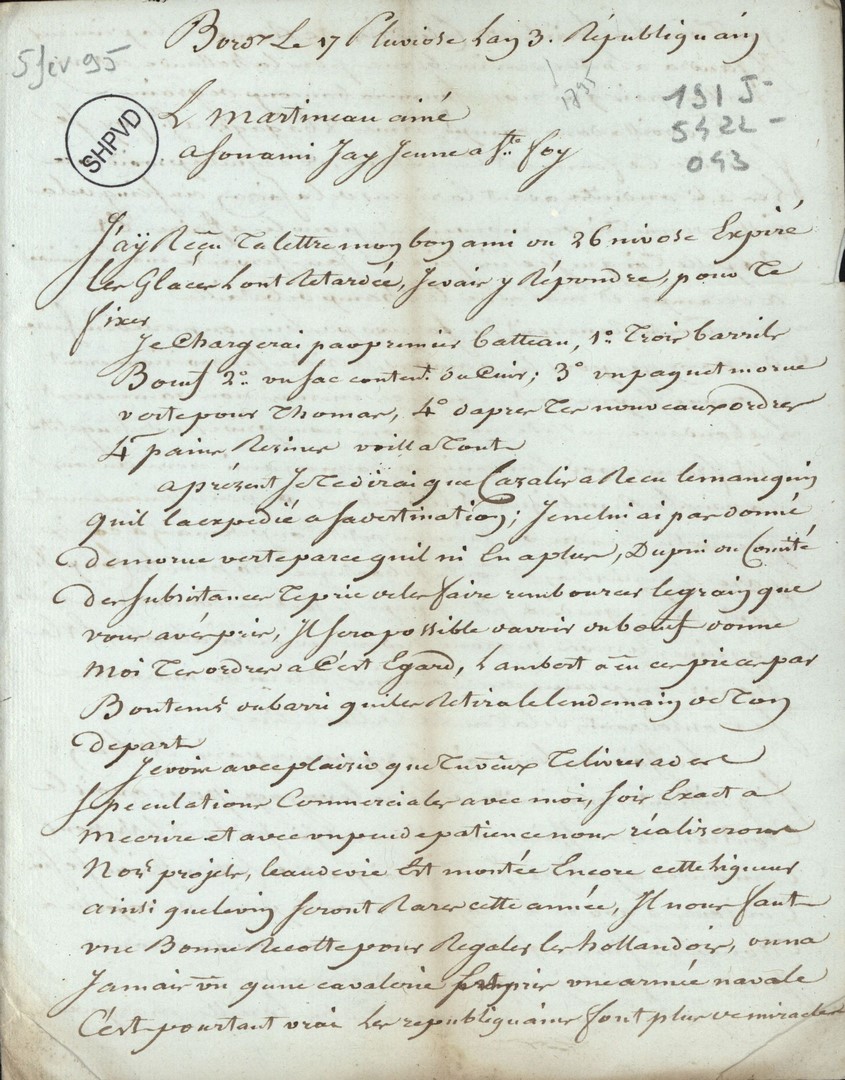 Bord.x Le 17 Pluviose Lan 3. Républiquain
5 fev 95
1795
191 J-
5422 -
043
SHPVD
L martineau ainé
a son ami Jay Jeune a Ste foy
J'aÿ Reçu Ta lettre mon bon ami du 26 nivose Expiré
Les Glaces Lont Retardée, Je vais y Répondre, pour Te
fixer
Je Chargerai par premier batteau, 1o. Trois barrils
Boeuf 2o. un sac content. du Cuir; 3o un paquet morue
verte pour Thomas, 4o d'apres Tes nouveaux ordres
4 pains Resines voilla Tout
a présent Je Te dirai que Cazalis a Recu le manequin
quil la expedié a sa destination; Je ne lui ai pas donné
de morue verte parce quil ni En a plus, Dupui du Comité
des subsistances Te prie de les faire rembourcer le grain que
vous avés pris, Il sera possible davoir du boeuf donne
moi Tes ordres a C'est Egard, Lambert a eu ces pieces par
Boutems du barri quil Retira le lendemain de Ton
depart
Je vois avec plaisir que Tu veux Te livrer a des
speculations Commerciales avec moi, sois Exact a
mecrire et avec un peu de patience nous réaliserons
Nos projets, leau de vie Est montée Encore cette Liqueur
ainsi que le vin seront Rares cette année, Il nous faut
une Bonne Recotte pour Regaler les hollandois, on na
Jamais vu qune cavalerie prie une armée navale
C'est pourtant vrai Les republiquains font plus de miracles